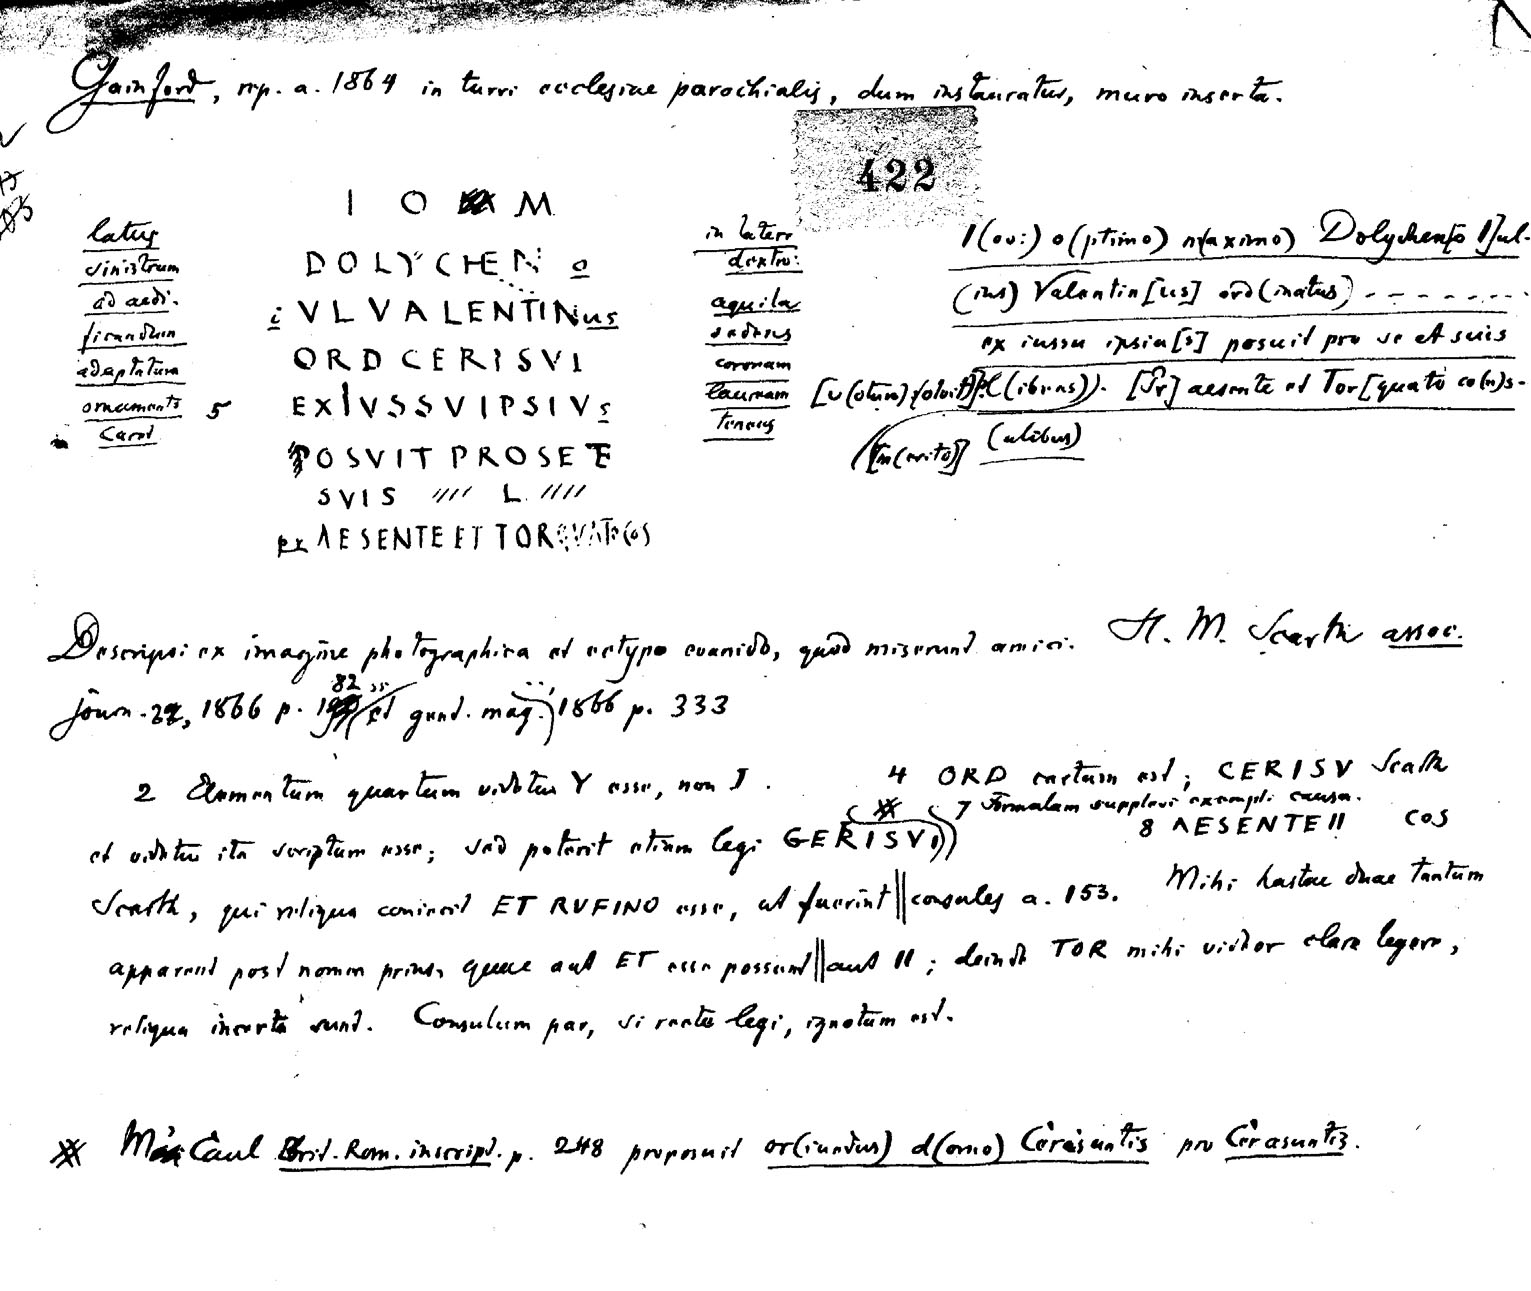 Gainford, rep. a. 1864 in turri ecclesiae parochialis, dum instauratur, muro inserta.
422
I O M
DOLYCHEN o
i VLVALENTINus
ORDCERISVI
5 EXIVSSVIPSIVs
POSVIT PROSETE
SVIS //// L ////
pr AESENTE ET TORQVATOCOS
latus
sinistrum
ad aedi-
ficandum
adaptatum
ornamentis
caret
in latere
dextro
aquila
sedens
coronam
lauream
tenens
I(ovi) o(ptimo) m(aximo) Dolycheno I]ul-
(ius) Valentin[us] ord(inatus) - - - - - - -
ex iussu ipsiu[s] posuit pro se et suis
[v(otum) s(olvit)] l(ibens) [Pr]aesente et Tor[quato co(n)s-
[m(erito)] (ulibus)
Descripsi ex imagine photographica et ectypo evanido, quod miserunt amici. H. M. Scarth assoc.
journ. 22, 1866 p. 82 ss. (et gent. mag.) 1866 p. 333
2 Elementum quartum videtur Y esse, non I. 4 ORD certum est; CERISV Scarth
et videtur ita scriptum esse; sed poterit etiam legi GERISVI) 7 Formulam supplevi exempli causa.
8 AESENTE II COS
Scarth, qui reliqua coniecit ET RVFINO esse, ut fuerint || consules a. 153. Mihi hastae duae tantum
apparent post nomen prius, quae aut ET esse possunt || aut II; deinde TOR mihi videor clare legere,
reliqua incerta sunt. Consulum par, si recte legi, ignotum est.
※ McCaul Brit. Rom. inscript. p. 248 proposuit or(iundus) d(omo) Cerisuntis pro Cerasuntis.